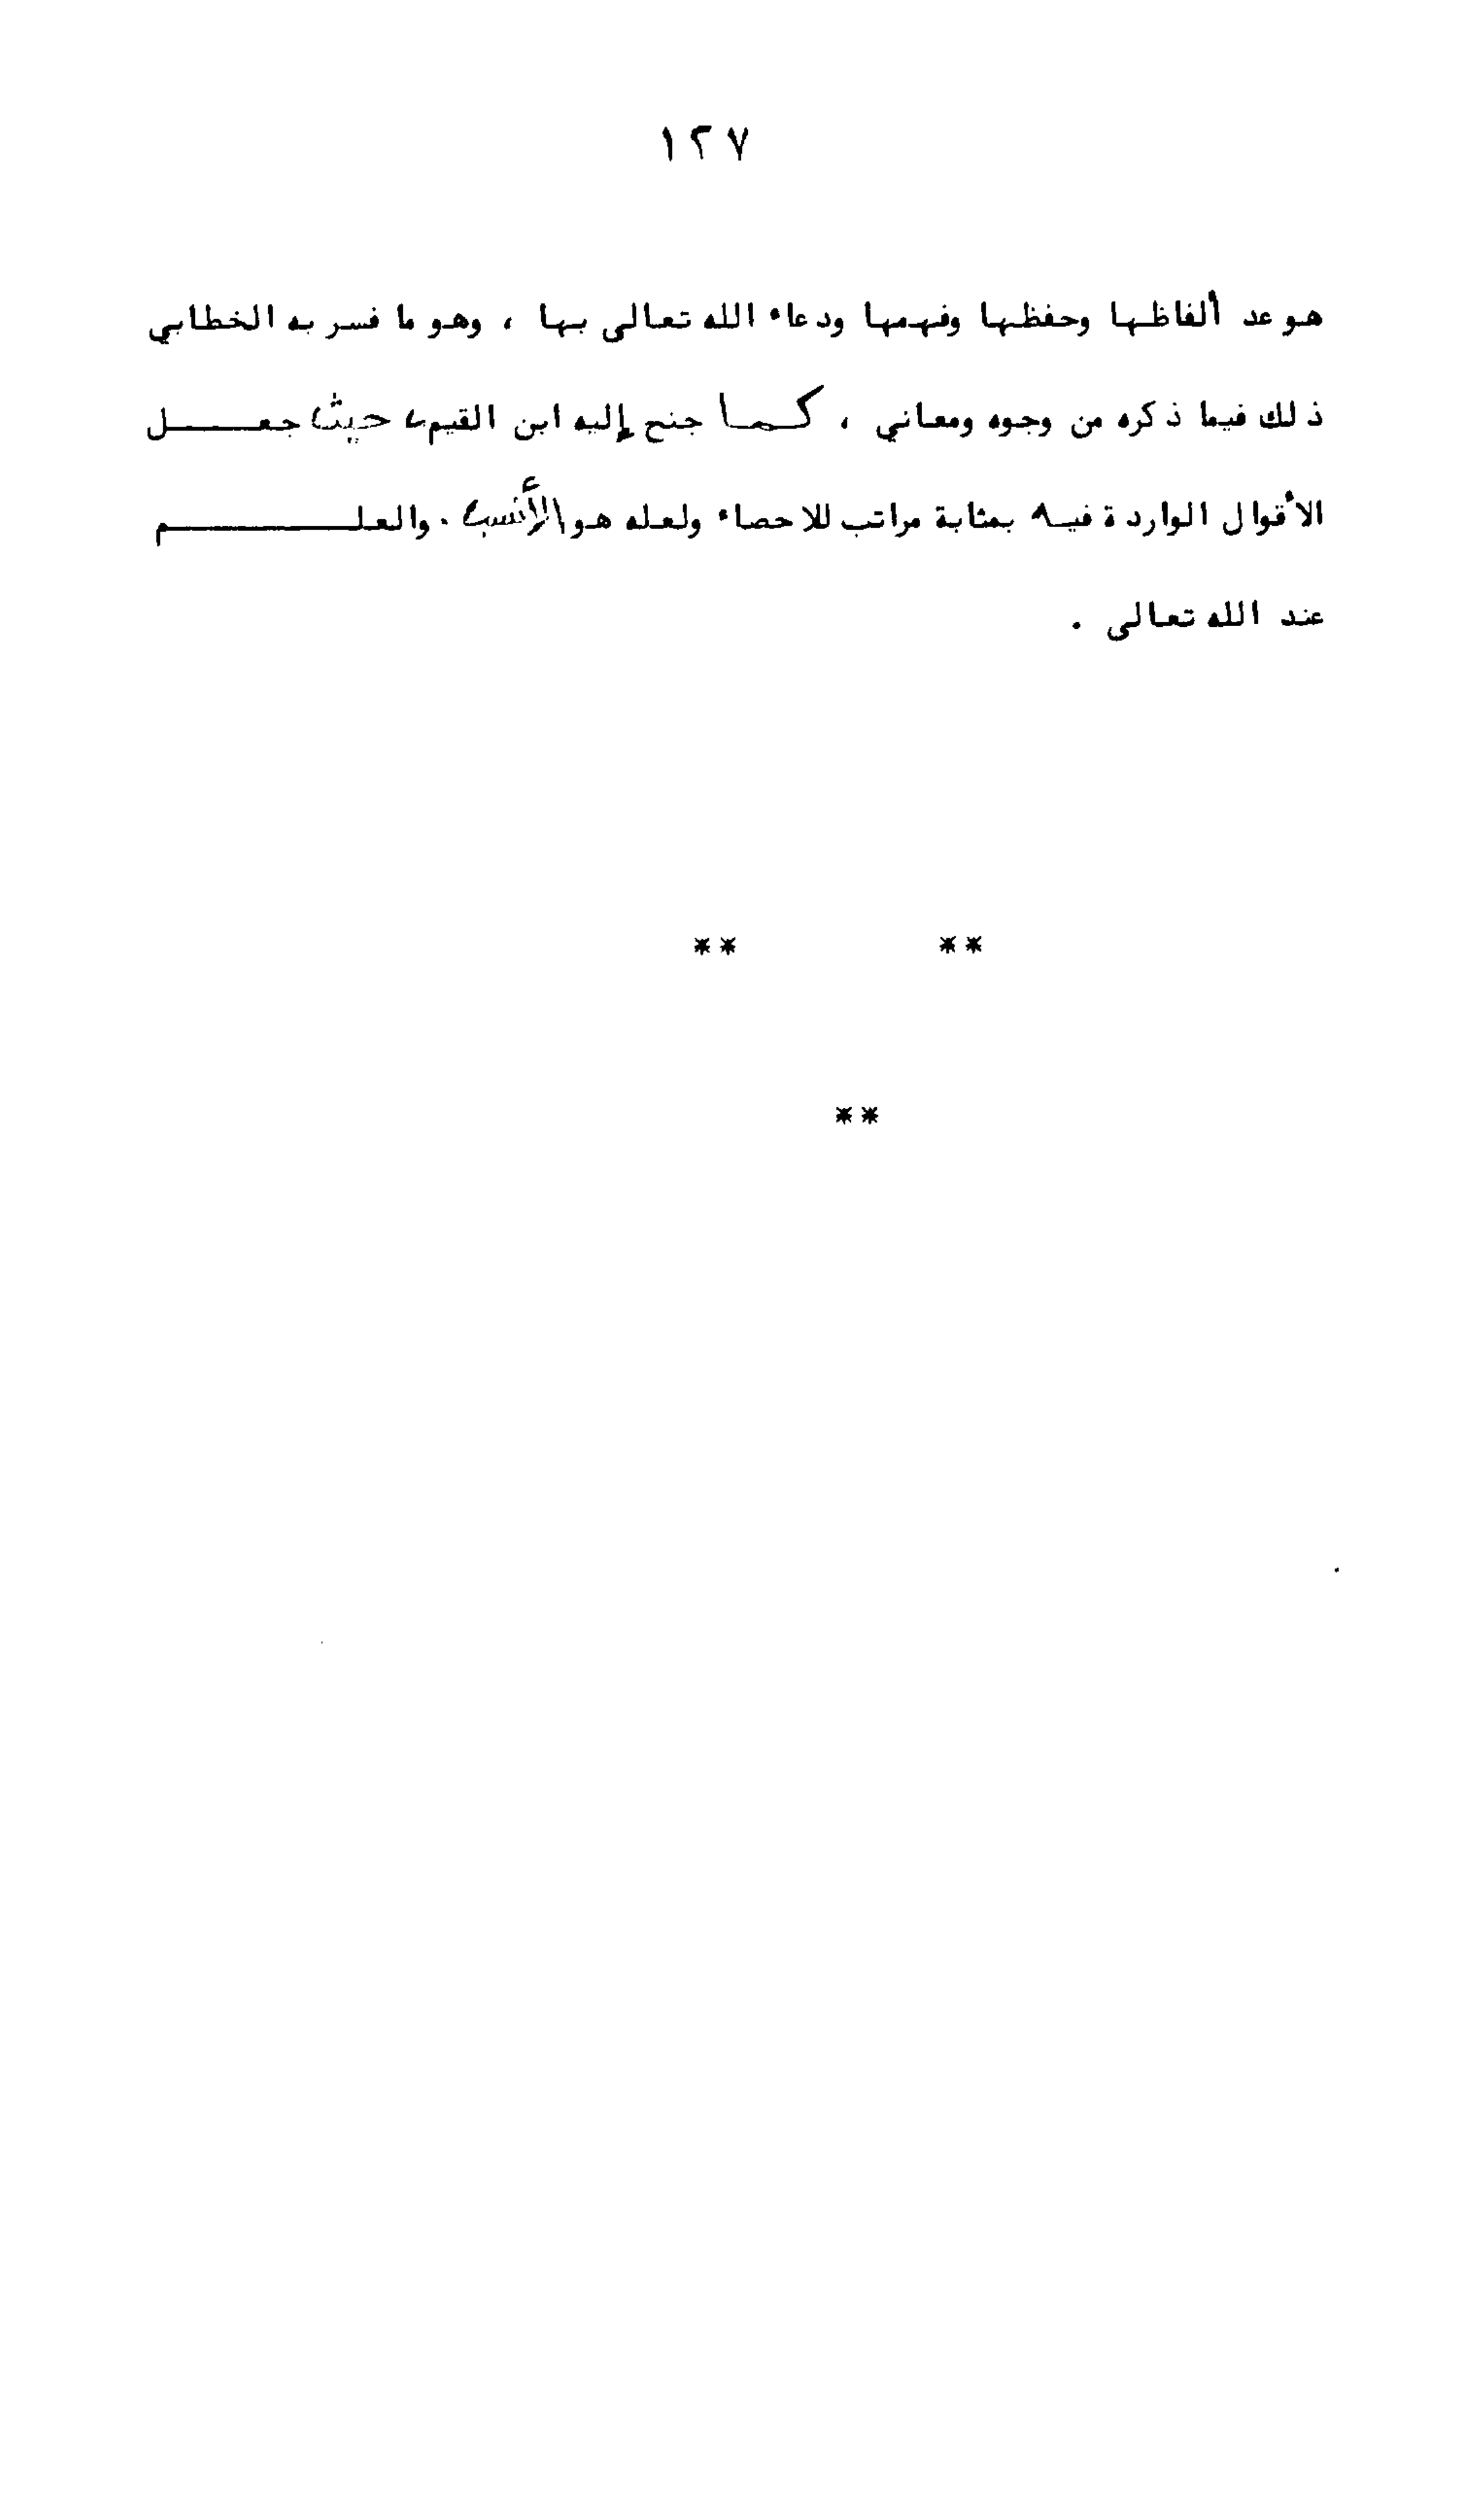 ١٢٧
هو عد ألفاظها وحفظها وفهمها ودعاء الله تعالى بها ، وهو ما فسر به الخطابي
ذلك فيما ذكره من وجوه ومعاني ، كما جنح إليه ابن القيم، حيث جعل
الأقوال الواردة فيه بمثابة مراتب للاحصاء ولعله هو الأنسب . والعلم
عند الله تعالى .
** **
**